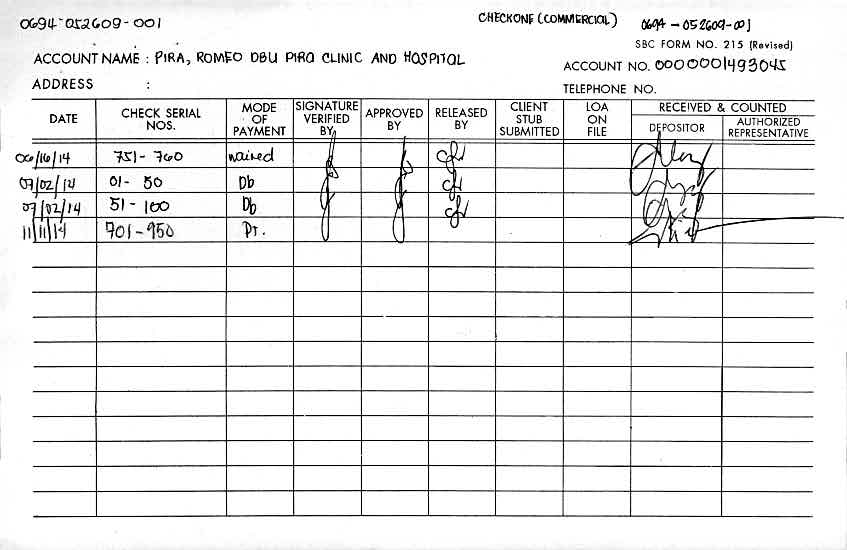 0694-052609-001 CHECKONE (COMMERCIAL) 0694-052609-001
SBC FORM NO. 215 (Revised)
ACCOUNT NAME : PIRA, ROMEO DBU PIRA CLINIC AND HOSPITAL
ACCOUNT NO. 0000001493045
ADDRESS :
TELEPHONE NO.
DATE CHECK SERIAL NOS. MODE OF PAYMENT SIGNATURE VERIFIED BY APPROVED BY RELEASED BY CLIENT STUB SUBMITTED LOA ON FILE RECEIVED & COUNTED
DEPOSITOR AUTHORIZED REPRESENTATIVE
06/16/14 751-760 waived
07/02/14 01-50 Db
07/02/14 51-100 Db
11/11/14 701-950 Pr.